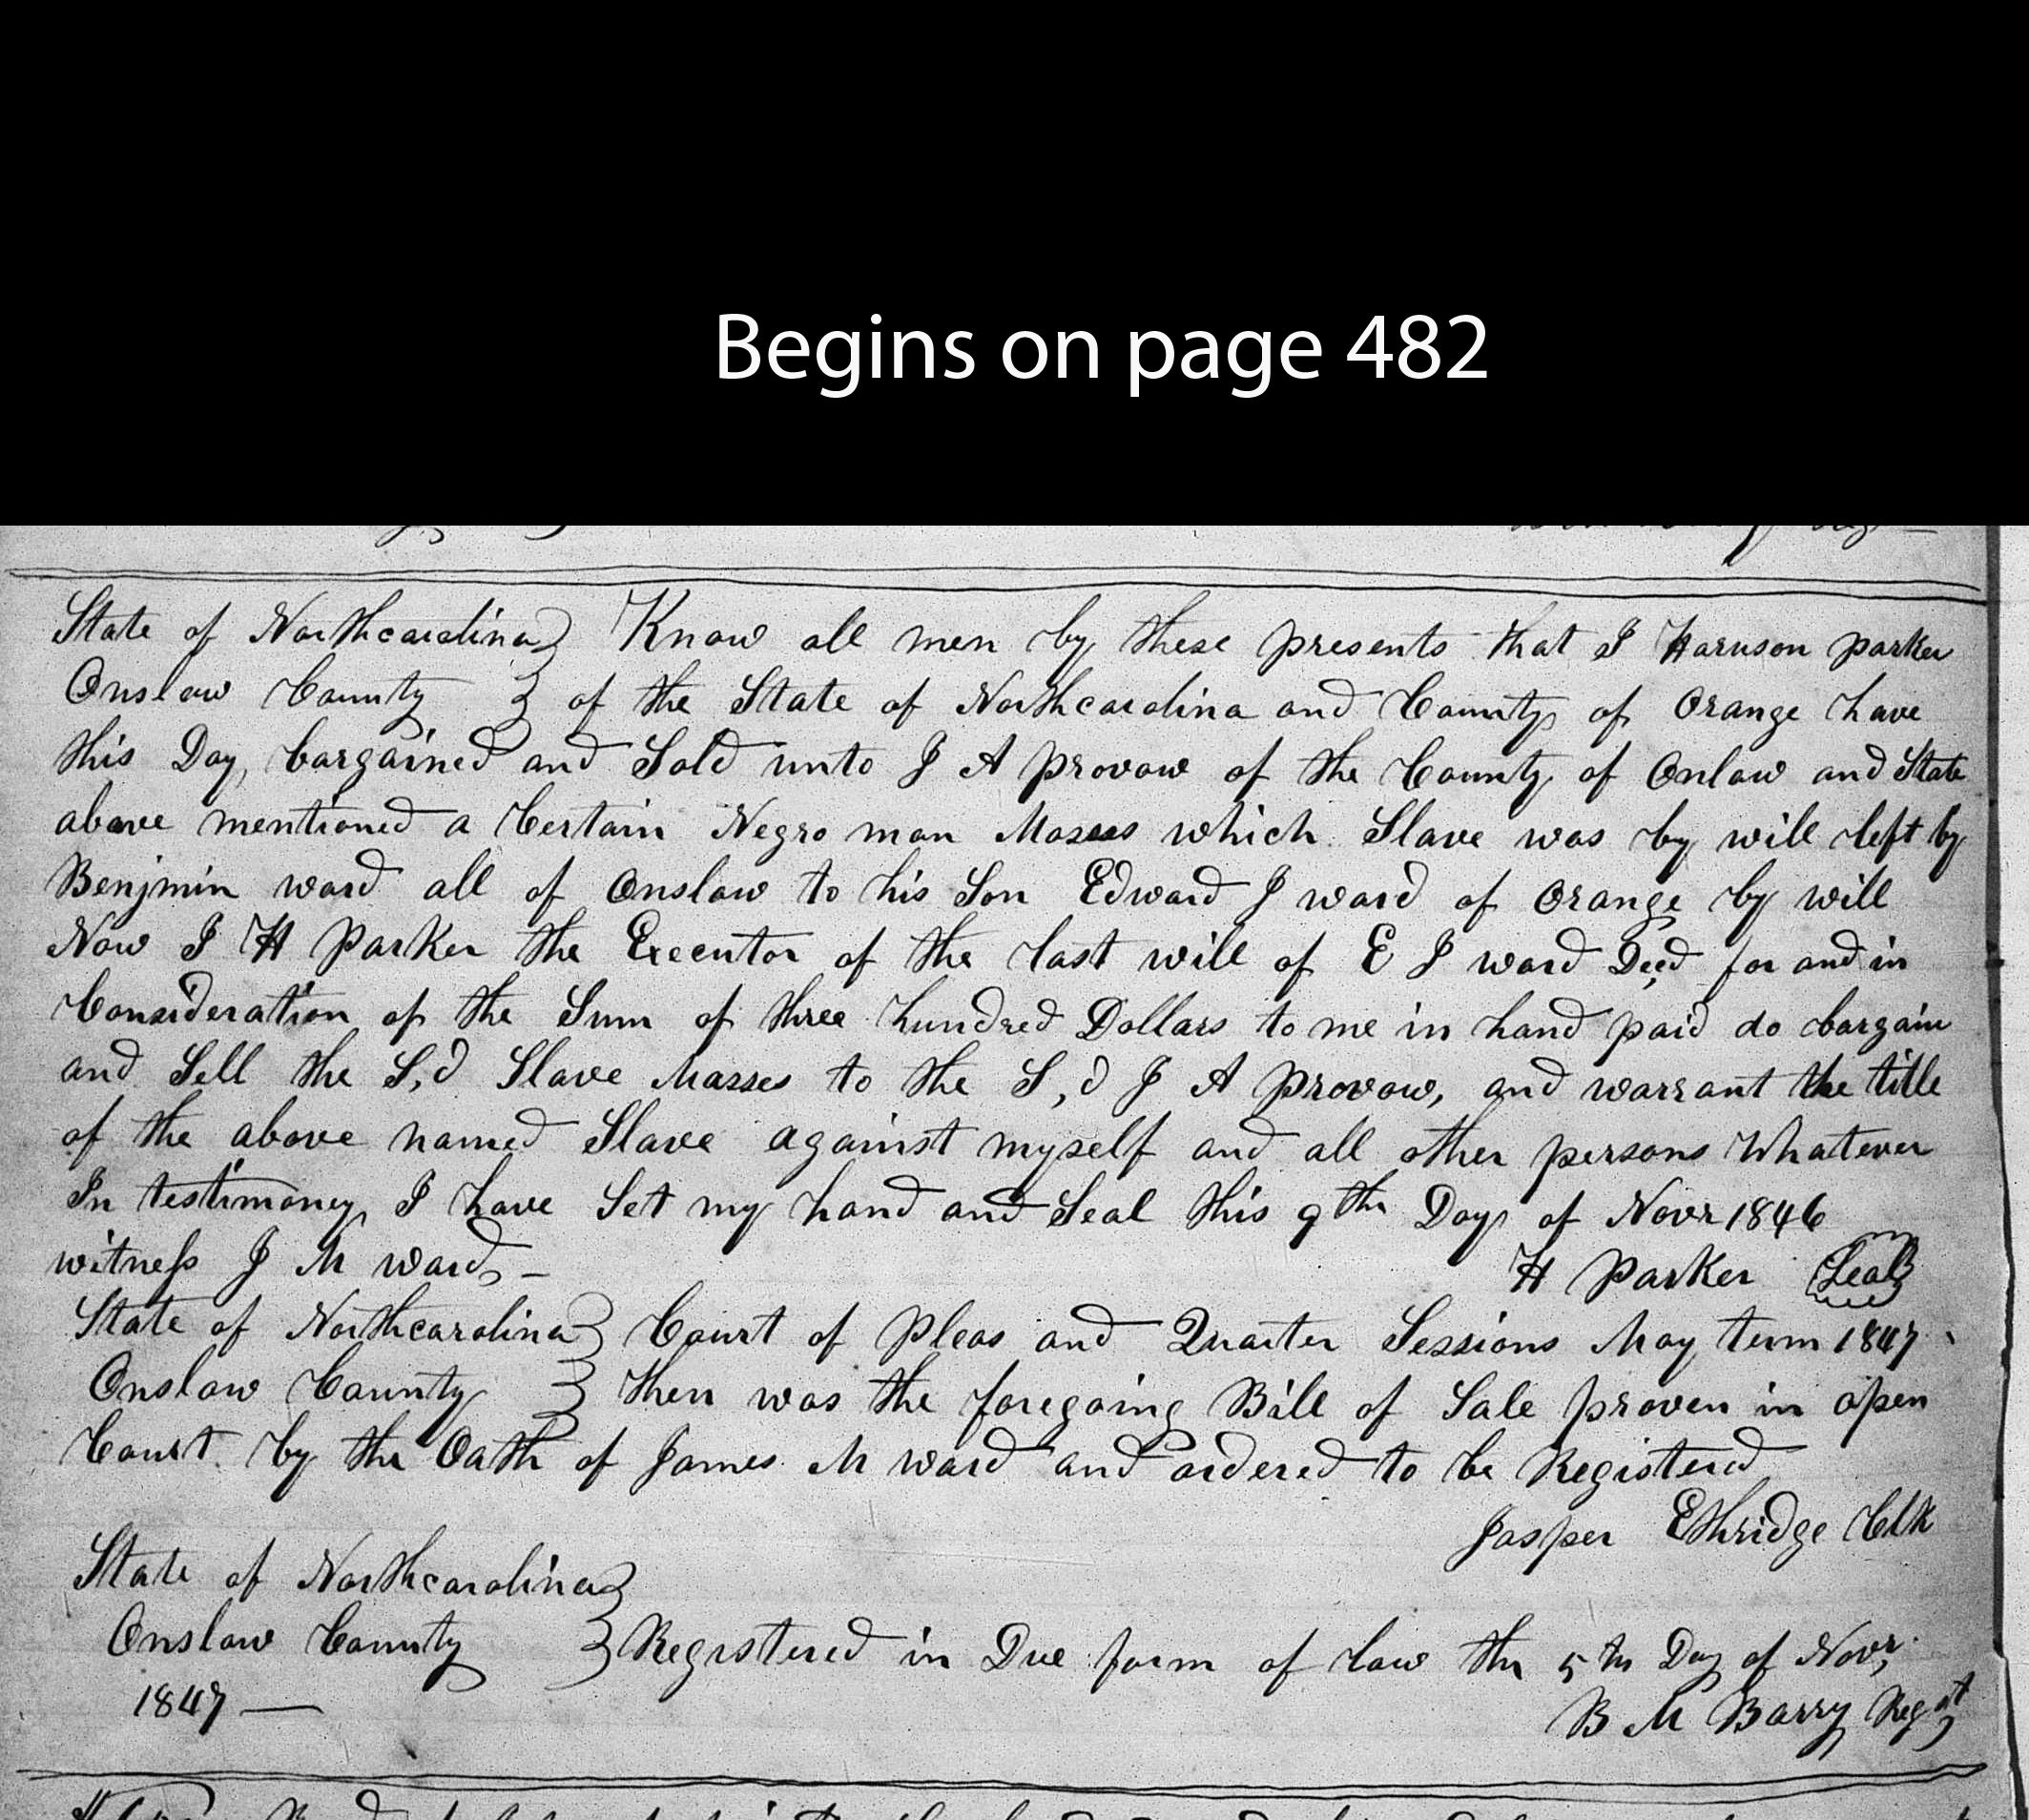 Begins on page 482
State of Northcarolina Know all men by these presents that I Harrison parker
Onslow County of the State of Northcarolina and County of Orange have
this Day bargained and Sold unto J A provow of the County of Onlaw and State
above mentioned a Certain Negro man Moses which Slave was by will left by
Benjmin ward all of Onslow to his Son Edward J ward of Orange by will
Now I H Parker the Executor of the last will of E J ward Decd for and in
Consideration of the Sum of three hundred Dollars to me in hand paid do bargain
and Sell the S,d Slave Masses to the S,d J A provow, and warrant the title
of the above named Slave against myself and all other persons Whatever
In testimoney I have Set my hand and Seal this 9th Day of Novr 1846
witness J M ward — H Parker Seal
State of Northcarolina Court of Pleas and Quarter Sessions May term 1847
Onslow County then was the foregoing Bill of Sale proven in open
Court by the Oath of James M ward and ordered to be Registered
Jasper Ethridge Clk
State of Northcarolina
Onslow County Registered in Due form of law the 5th Day of Novr,
1847 — B M Barry